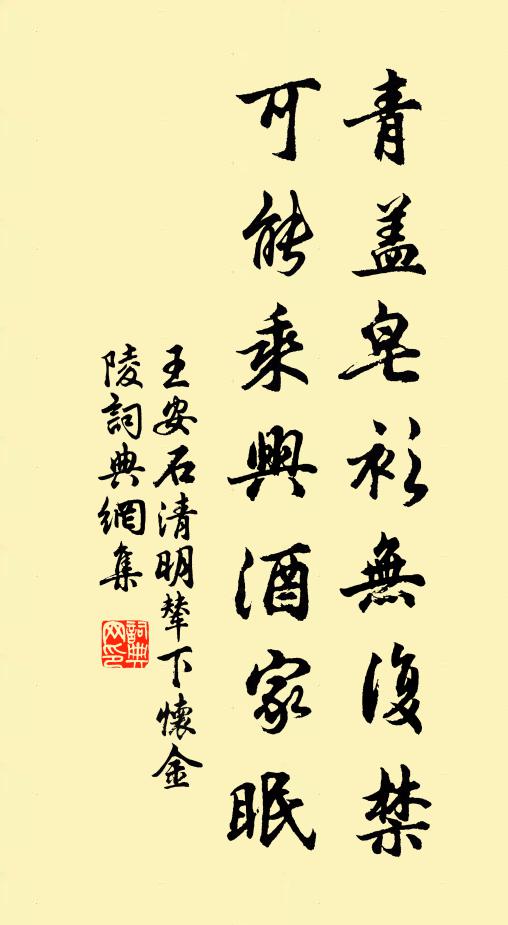 青盖皂衫無復禁
可能乘興酒家眠
王安石清明輦下懷金
陵詞典網集
詞典網印